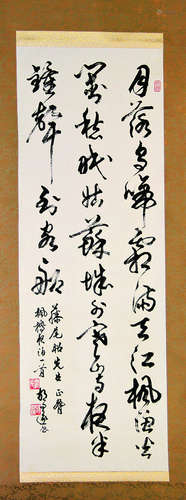 月落烏啼霜滿天江楓漁火
對愁眠姑蘇城外寒山寺夜半
鐘聲到客船
藤尾昭先生正
楓橋夜泊一首